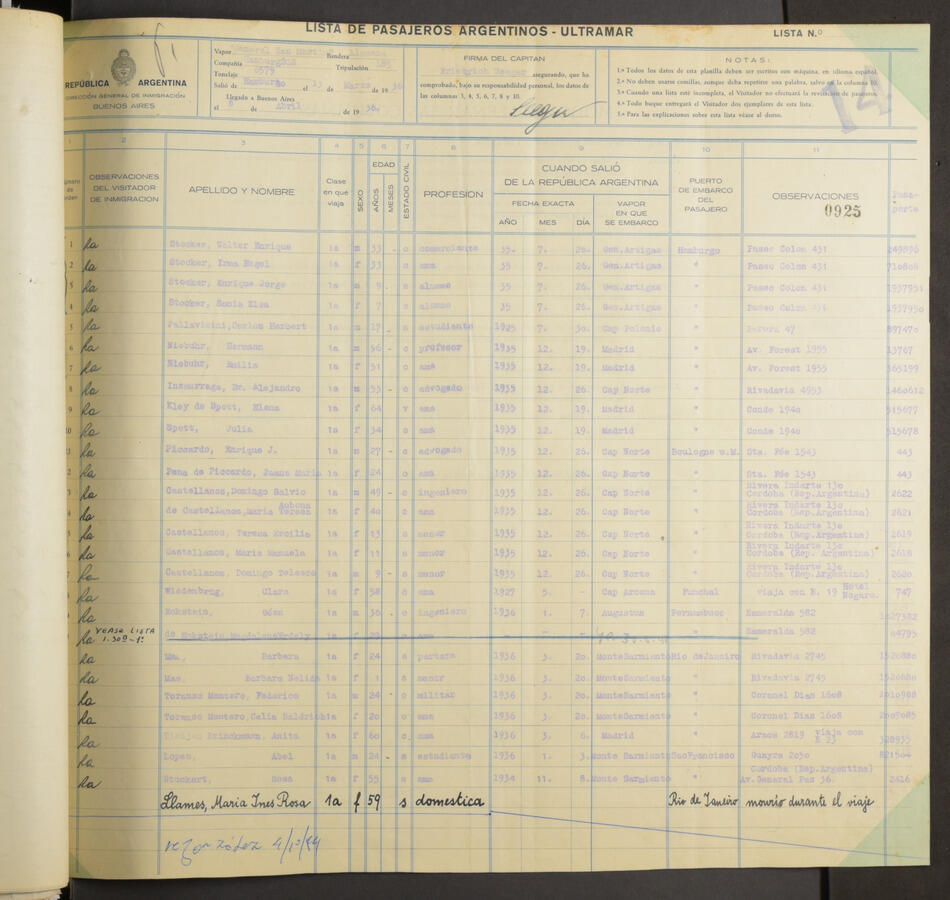 LISTA DE PASAJEROS ARGENTINOS - ULTRAMAR
LISTA N.º
REPÚBLICA ARGENTINA
DIRECCIÓN GENERAL DE INMIGRACIÓN
BUENOS AIRES
Vapor General San Martin Bandera Alemana
Compañía Tripulación
Tonelaje 6579
Salió de Hamburgo el 13 de Marzo de 1936
Llegado a Buenos Aires
el 8 de Abril de 1936.
FIRMA DEL CAPITAN
Friedrich asegurando, que ha
comprobado, bajo su responsabilidad personal, los datos de
las columnas 3, 4, 5, 6, 7, 8 y 10.
NOTAS:
1.ª Todos los datos de esta planilla deben ser escritos con máquina, en idioma español.
2.ª No deben usarse comillas, aunque deba repetirse una palabra, salvo en la columna 10.
3.ª Cuando una lista esté incompleta, el Visitador no efectuará la revisión de pasajeros.
4.ª Todo buque entregará el Visitador dos ejemplares de esta lista.
5.ª Para las explicaciones sobre esta lista véase al dorso.
14
1 2 3 4 5 6 7 8 9 10 11
OBSERVACIONES DEL VISITADOR DE INMIGRACION
APELLIDO Y NOMBRE
Clase en que viaja
SEXO
EDAD
AÑOS
MESES
ESTADO CIVIL
PROFESION
CUANDO SALIÓ DE LA REPÚBLICA ARGENTINA
FECHA EXACTA
AÑO MES DÍA
VAPOR EN QUE SE EMBARCO
PUERTO DE EMBARCO DEL PASAJERO
OBSERVACIONES
0925
Pasaporte
1 Stocker, Walter Enrique 1a m 33 - c comerciante 35. 7. 26. Gen.Artigas Hamburgo Paseo Colon 431 249896
2 Stocker, Irma Nagel 1a f 33 c ama 35 7. 26. Gen.Artigas " Paseo Colon 431 710808
3 Stocker, Enrique Jorge 1a m 9 s alumno 35 7. 26. Gen.Artigas " Paseo Colon 431 1937951
4 Stocker, Sonia Elsa 1a f 7 s alumno 35 7. 26. Gen.Artigas " Paseo Colon 431 1937950
5 Pallavicini, Carlos Herbert 1a m 17 - s estudiante 1925 7. 30. Cap Polonio " 47 897470
6 Niebuhr, Hermann 1a m 56 - c profesor 1935 12. 19. Madrid " Av. Forest 1955 13767
7 Niebuhr, Emilia 1a f 51 c ama 1935 12. 19. Madrid " Av. Forest 1955 365199
8 Insaurraga, Dr. Alejandro 1a m 53 - c advogado 1935 12. 26. Cap Norte " Rivadavia 4953 1460612
9 Kley de Spott, Elena 1a f 64 v ama 1935 12. 19. Madrid " Conde 1940 515677
10 Spott, Julia 1a f 34 s ama 1935 12. 19. Madrid " Conde 1940 515678
1 Piccardo, Enrique J. 1a m 27 - c advogado 1935 12. 26. Cap Norte Boulogne s.M. Sta. Fée 1543 443
2 Pena de Piccardo, Juana Maria 1a f 24 c ama 1935 12. 26. Cap Norte " Sta. Fée 1543 443
3 Castellanos, Domingo Salvio 1a m 49 - c ingeniero 1935 12. 26. Cap Norte " Rivera Indarte 130 Cordoba (Rep.Argentina) 2622
4 de Castellanos, Maria Teresa 1a f 40 c ama 1935 12. 26. Cap Norte " Rivera Indarte 130 Cordoba (Rep.Argentina) 2621
5 Castellanos, Teresa Ercilia 1a f 13 s menor 1935 12. 26. Cap Norte " Rivera Indarte 130 Cordoba (Rep.Argentina) 2619
6 Castellanos, Maria Manuela 1a f 11 s menor 1935 12. 26. Cap Norte " Rivera Indarte 130 Cordoba (Rep. Argentina) 2618
7 Castellanos, Domingo 1a m 9 - s menor 1935 12. 26. Cap Norte " Rivera Indarte 130 Cordoba (Rep.Argentina) 2620
8 Wiedenbrug, Clara 1a f 58 c ama 1927 5. - Cap Arcona Funchal viaja con N. 19 Hotel 747
9 Eckstein, 1a m 36 - c ingeniero 1936 1. 7. Augustus Pernambuco Esmeralda 582
VEASE LISTA 1.309-1ª
de Eckstein, Magdalena 1a f ama Esmeralda 582 64795
Mas, Barbara 1a f 24 s partera 1936 3. 20. MonteSarmiento Rio de Janeiro Rivadavia 2745
Mas, Barbara Nelida 1a f 1 s menor 1936 3. 20. MonteSarmiento " Rivadavia 2745
Toranzo Montero, Federico 1a m 24 - c militar 1936 3. 20. MonteSarmiento " Coronel Dias 1608
Toranzo Montero, Celia 1a f 20 c ama 1936 3. 20. MonteSarmiento " Coronel Dias 1608
Brinckmann, Anita 1a f 60 c ama 1936 3. 6. Madrid " Araoz 2819 viaja con N 23
Lopez, Abel 1a m 24 - s estudiante 1936 1. 3. Monte Sarmiento SaoFrancisco Guayra 2030
Stockert, Rosa 1a f 55 s ama 1934 11. 8. Monte Sarmiento " Cordoba (Rep.Argentina) Av.General Paz 36. 2416
Llames, Maria Ines Rosa 1a f 59 s domestica Rio de Janeiro murió durante el viaje